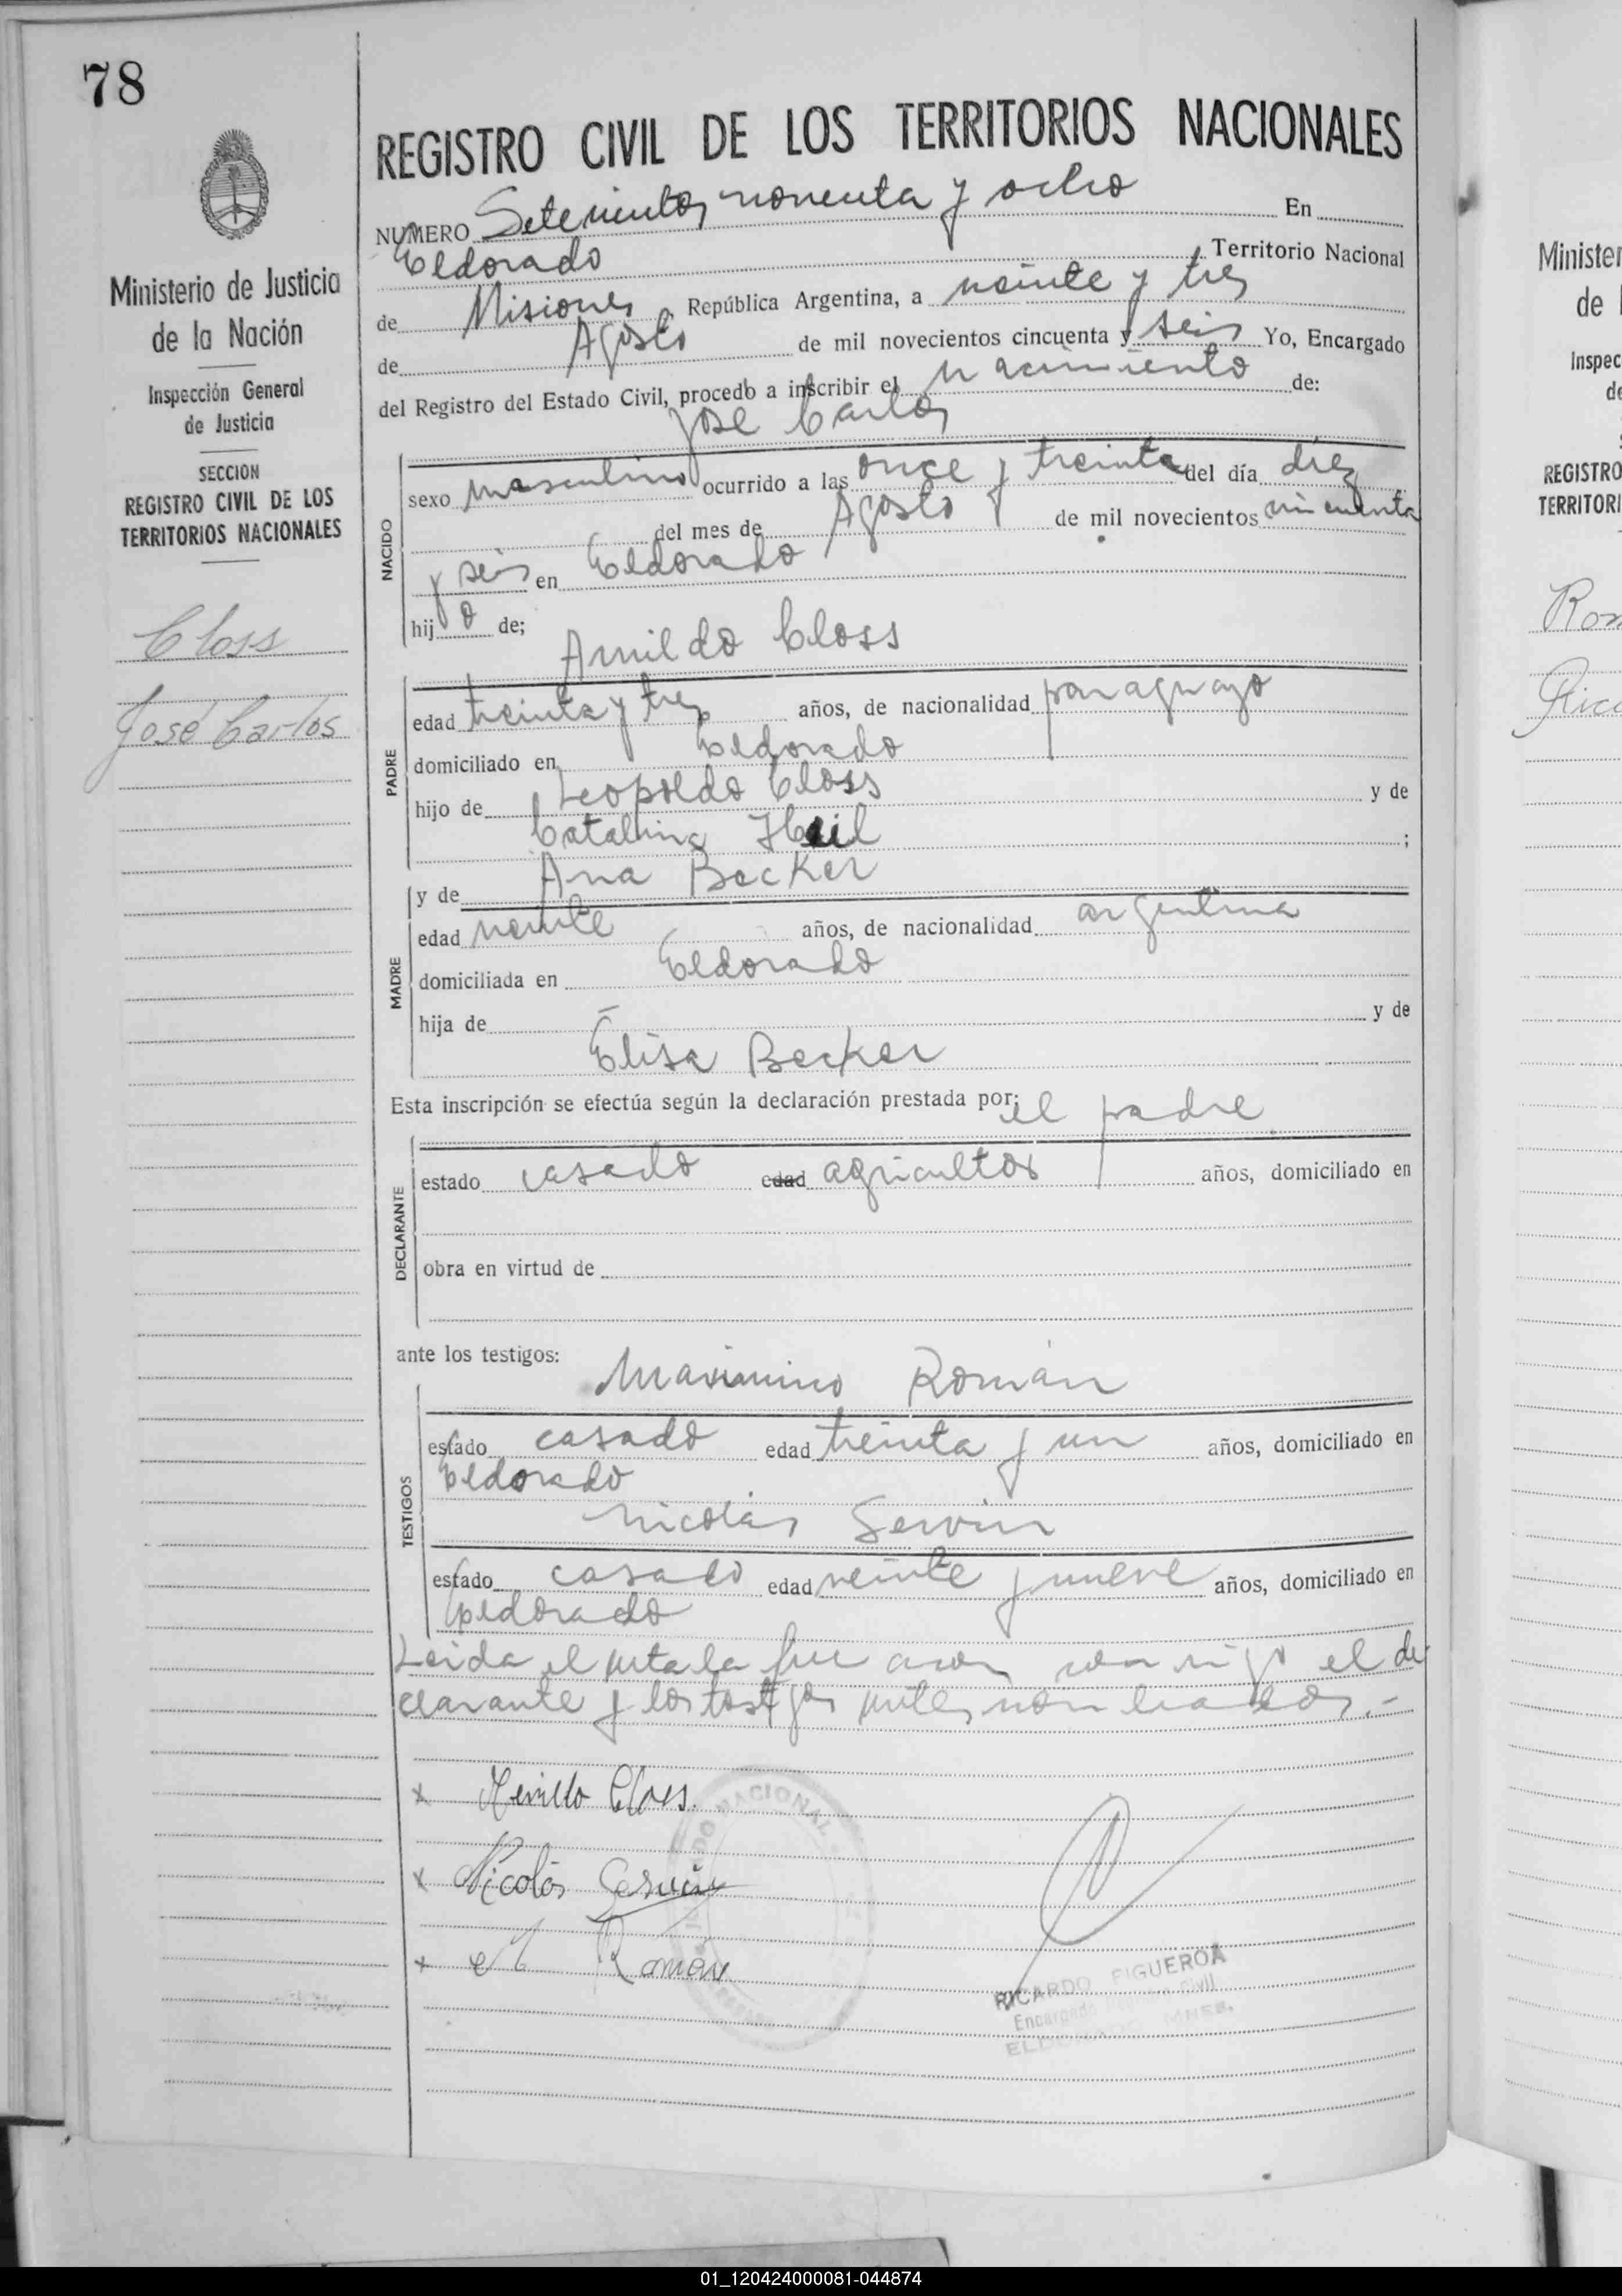 78
REGISTRO CIVIL DE LOS TERRITORIOS NACIONALES
NUMERO Setecientos noventa y ocho En
Eldorado Territorio Nacional
de Misiones, República Argentina, a veinte y tres
de Agosto de mil novecientos cincuenta y seis Yo, Encargado
del Registro del Estado Civil, procedo a inscribir el nacimiento de:
José Carlos
Ministerio de Justicia
de la Nación
Inspección General
de Justicia
SECCION
REGISTRO CIVIL DE LOS
TERRITORIOS NACIONALES
Closs
José Carlos
NACIDO
sexo masculino ocurrido a las once y treinta del día diez
del mes de Agosto de mil novecientos cincuenta
y seis en Eldorado
hijo de;
Arnildo Closs
PADRE
edad treinta y tres años, de nacionalidad paraguayo
domiciliado en Eldorado
hijo de Leopoldo Closs y de
Catalina ;
y de Ana Becker
MADRE
edad veinte años, de nacionalidad argentina
domiciliada en Eldorado
hija de — y de
Elisa Becker
Esta inscripción se efectúa según la declaración prestada por: el padre
DECLARANTE
estado casado edad agricultor años, domiciliado en
obra en virtud de
ante los testigos:
Maximino Román
TESTIGOS
estado casado edad treinta y un años, domiciliado en
Eldorado
Nicolás Servin
estado casado edad veinte y nueve años, domiciliado en
Eldorado
Leida el acta la firman conmigo el de
clarante y los testigos antes nombrados.-
x Closs.
x Nicolás Servin
x M Román
NACIONAL
RICARDO FIGUEROA
Encargado Registro Civil
ELDORADO MNES.
Minister
de l
Inspec
de
REGISTRO
TERRITORI
Rom
Rica
01_120424000081-044874